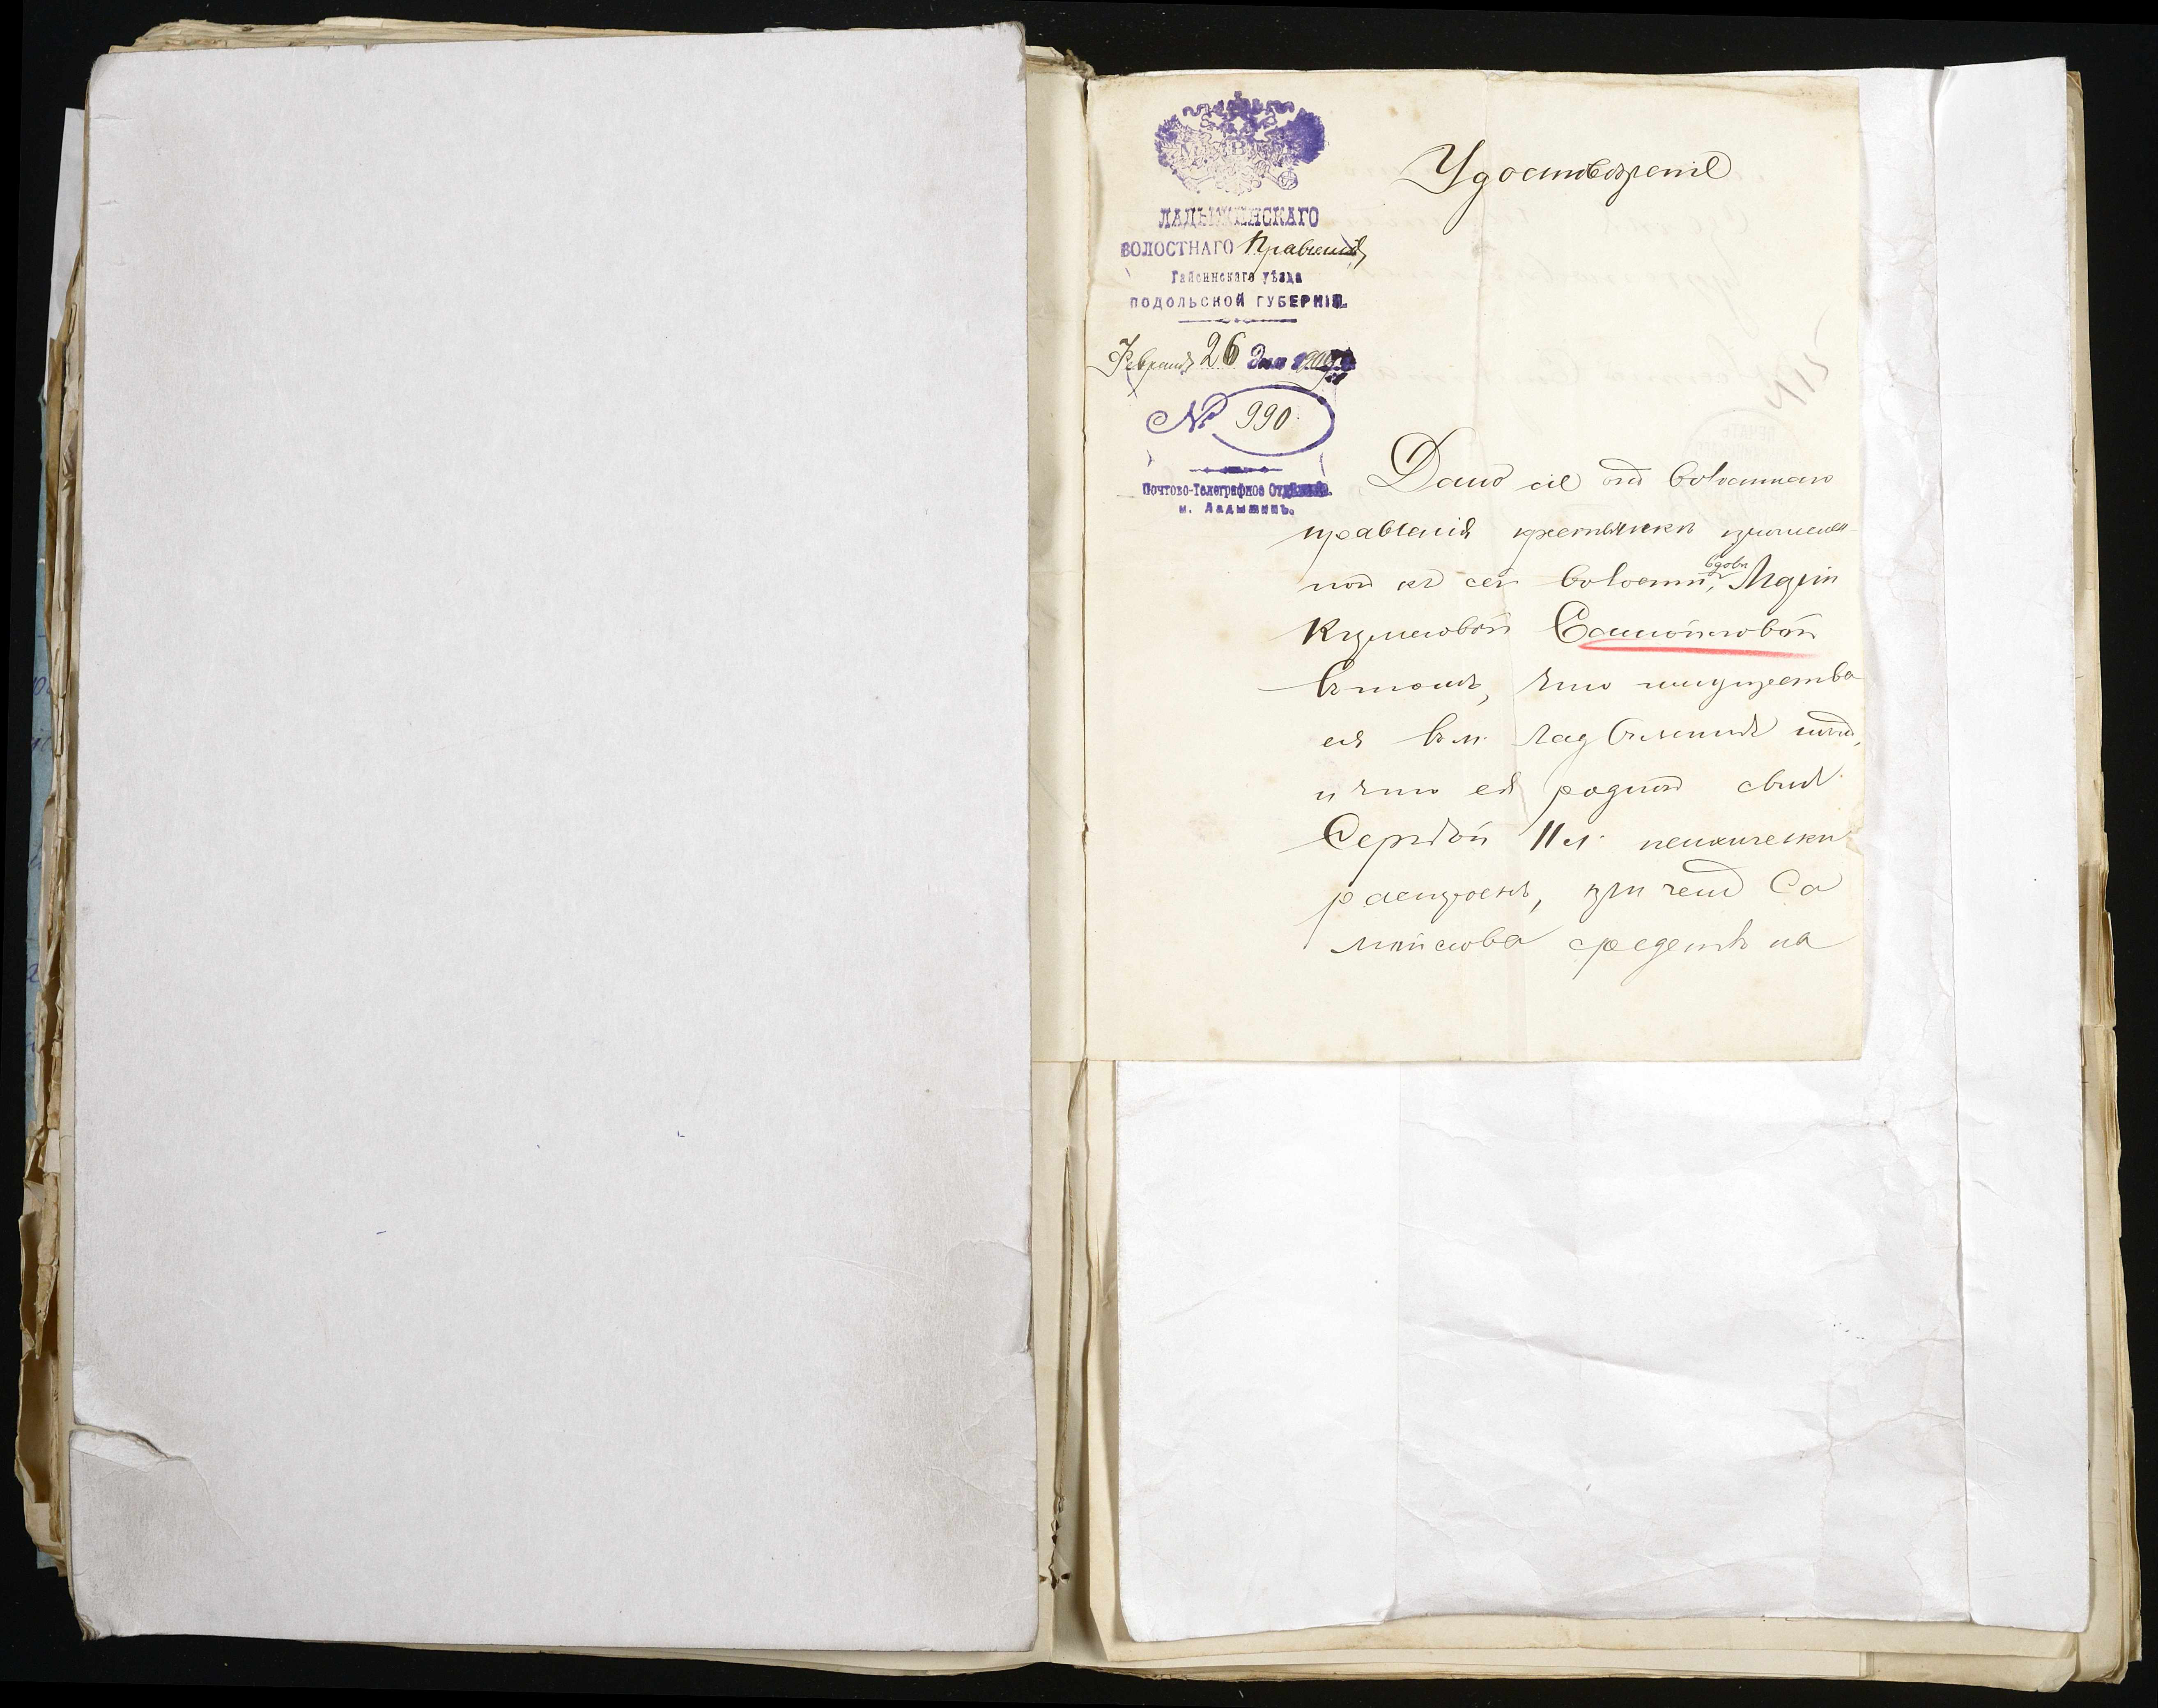 М.В.Д.
ЛАДЫЖИНСКАГО
ВОЛОСТНАГО Правленія
Гайсинскаго уѣзда
ПОДОЛЬСКОЙ ГУБЕРНІИ.
Февраля 26 дня 190
№ 990
Почтово-Телеграфное Отдѣленіе.
м. Ладыжинъ.
Удостовѣреніе
Дано сіе отъ волостнаго
правленія крестьянкѣ причислен-
ной къ сей волости, вдовѣ Маріи
Кузьмовой Самойловой
въ томъ, что имущества
ея въ м. Ладыжинѣ нѣтъ,
и что ея родной сынъ
Сергѣй 11 л. психически
растроенъ, при чемъ Са
мойлова средствъ на